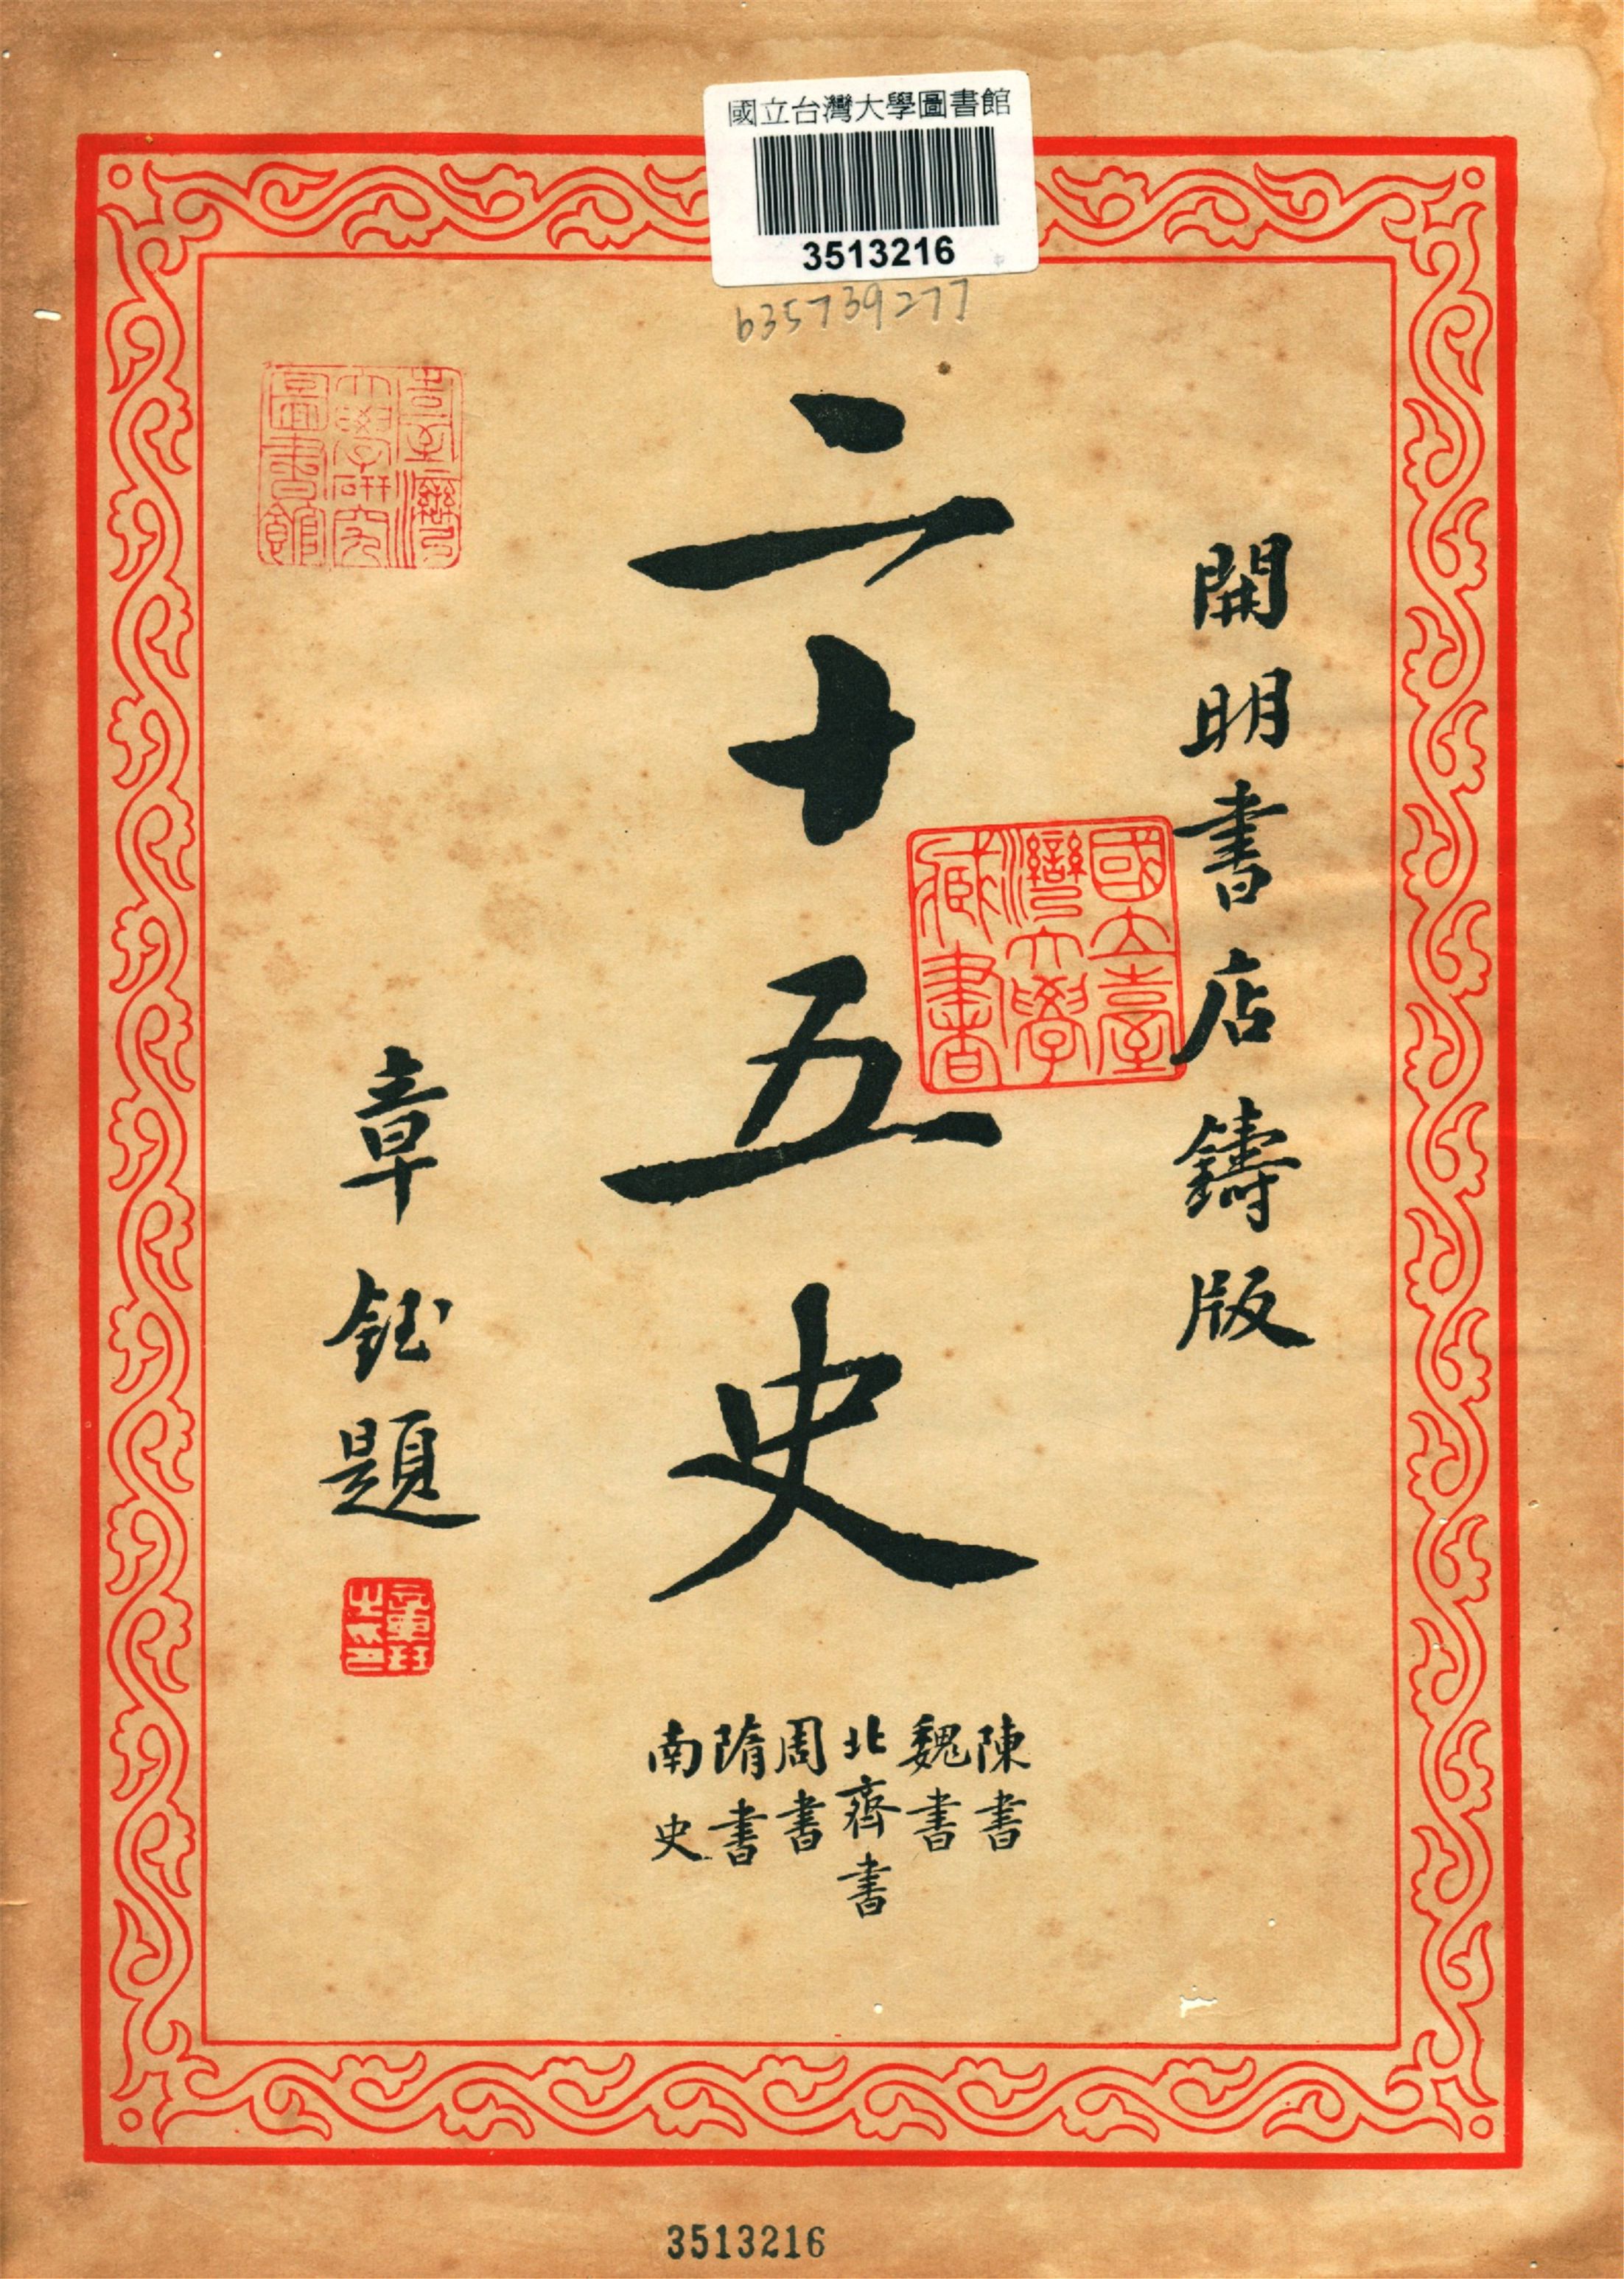 國立台灣大學圖書館
3513216
b35739277
開明書店鑄版
二十五史
陳書
魏書
北齊書
周書
隋書
南史
章鈺題
國立臺
灣大學
藏書
臺灣
大學研究
圖書館
3513216